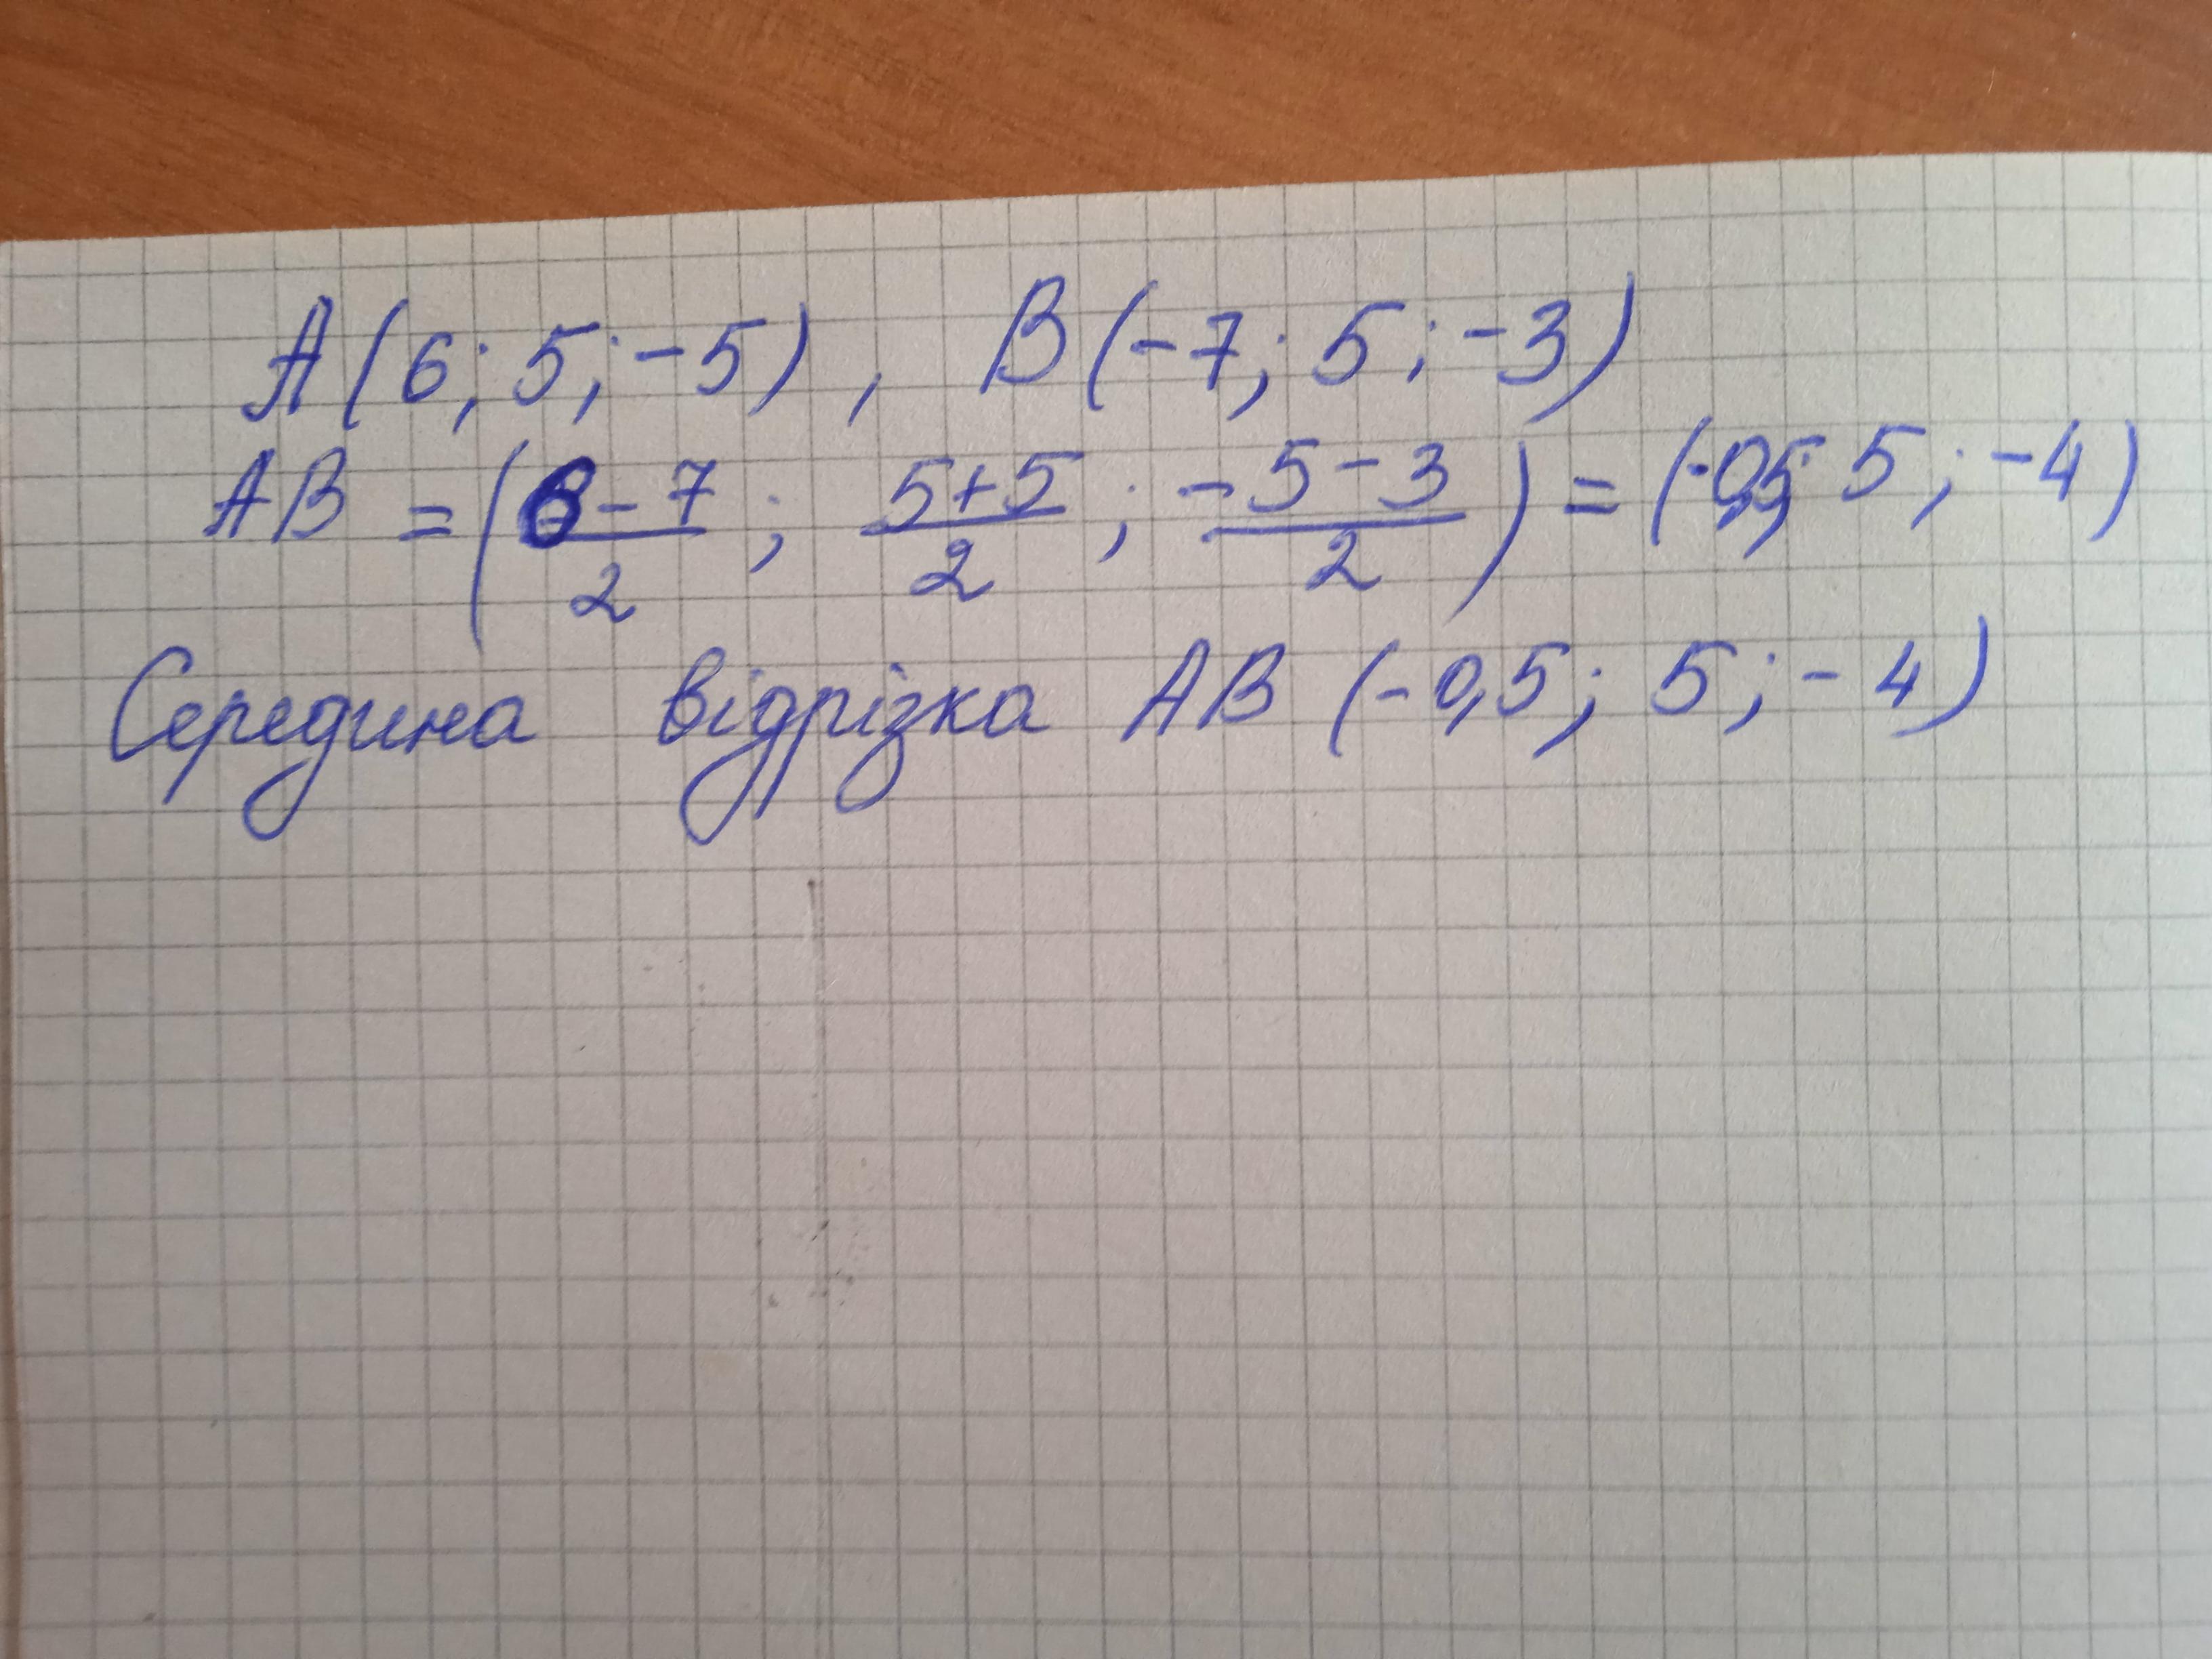 A(6; 5; -5), B(-7; 5; -3)
AB = (6-7/2; 5+5/2; -5-3/2) = (-0,5; 5; -4)
Середина відрізка AB (-0,5; 5; -4)